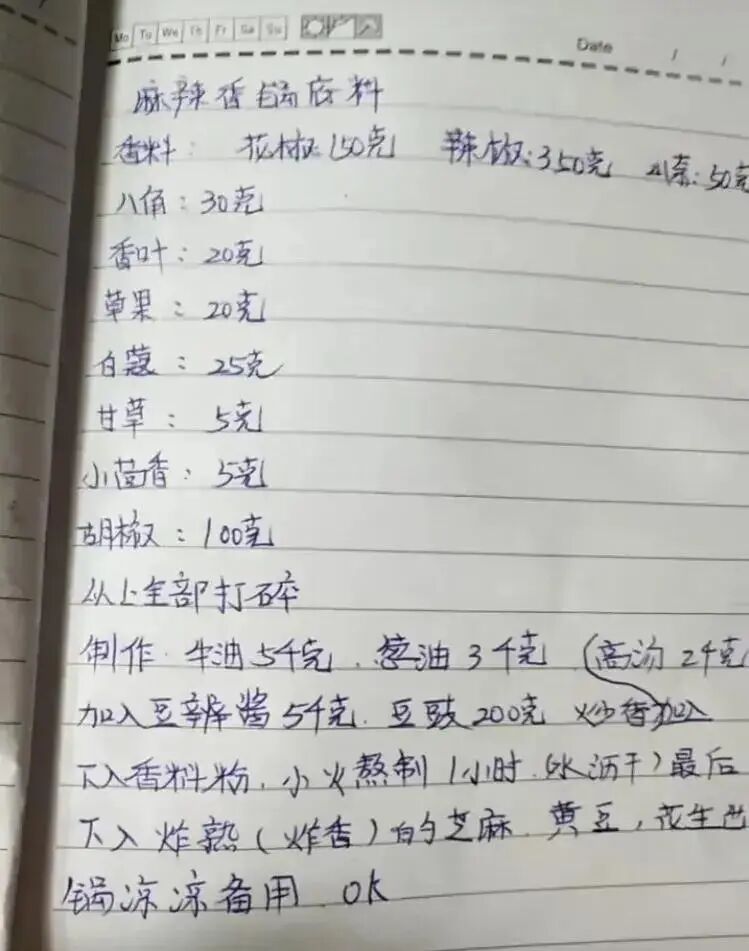 Mo Tu We Th Fr Sa Su
Date / /
麻辣香锅底料
香料: 花椒150克 辣椒:350克 :50克
八角:30克
香叶:20克
草果:20克
白蔻:25克
甘草:5克
小茴香:5克
胡椒:100克
以上全部打碎
制作. 牛油5千克. 葱油3千克 (高汤2千克
加入豆辨酱5千克. 豆豉200克 炒香加入
下入香料粉. 小火熬制1小时.(水沥干)最后
下入炸熟(炸香)的芝麻. 黄豆,花生出
锅凉凉备用. OK